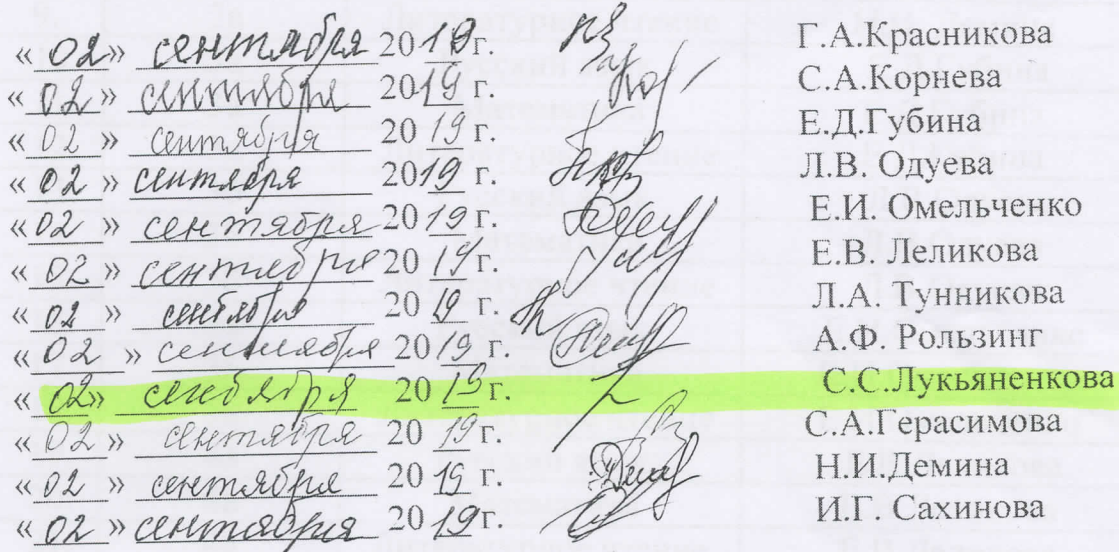 « 02 » сентября 2019г. Г.А.Красникова
« 02 » сентября 2019г. С.А.Корнева
« 02 » сентября 2019г. Е.Д.Губина
« 02 » сентября 2019г. Л.В. Одуева
« 02 » сентября 2019г. Е.И. Омельченко
« 02 » сентября 2019г. Е.В. Леликова
« 02 » сентября 2019г. Л.А. Тунникова
« 02 » сентября 2019г. А.Ф. Рользинг
« 02» сентября 2019г. С.С.Лукьяненкова
« 02 » сентября 2019г. С.А.Герасимова
« 02 » сентября 2019г. Н.И.Демина
« 02 » сентября 2019г. И.Г. Сахинова